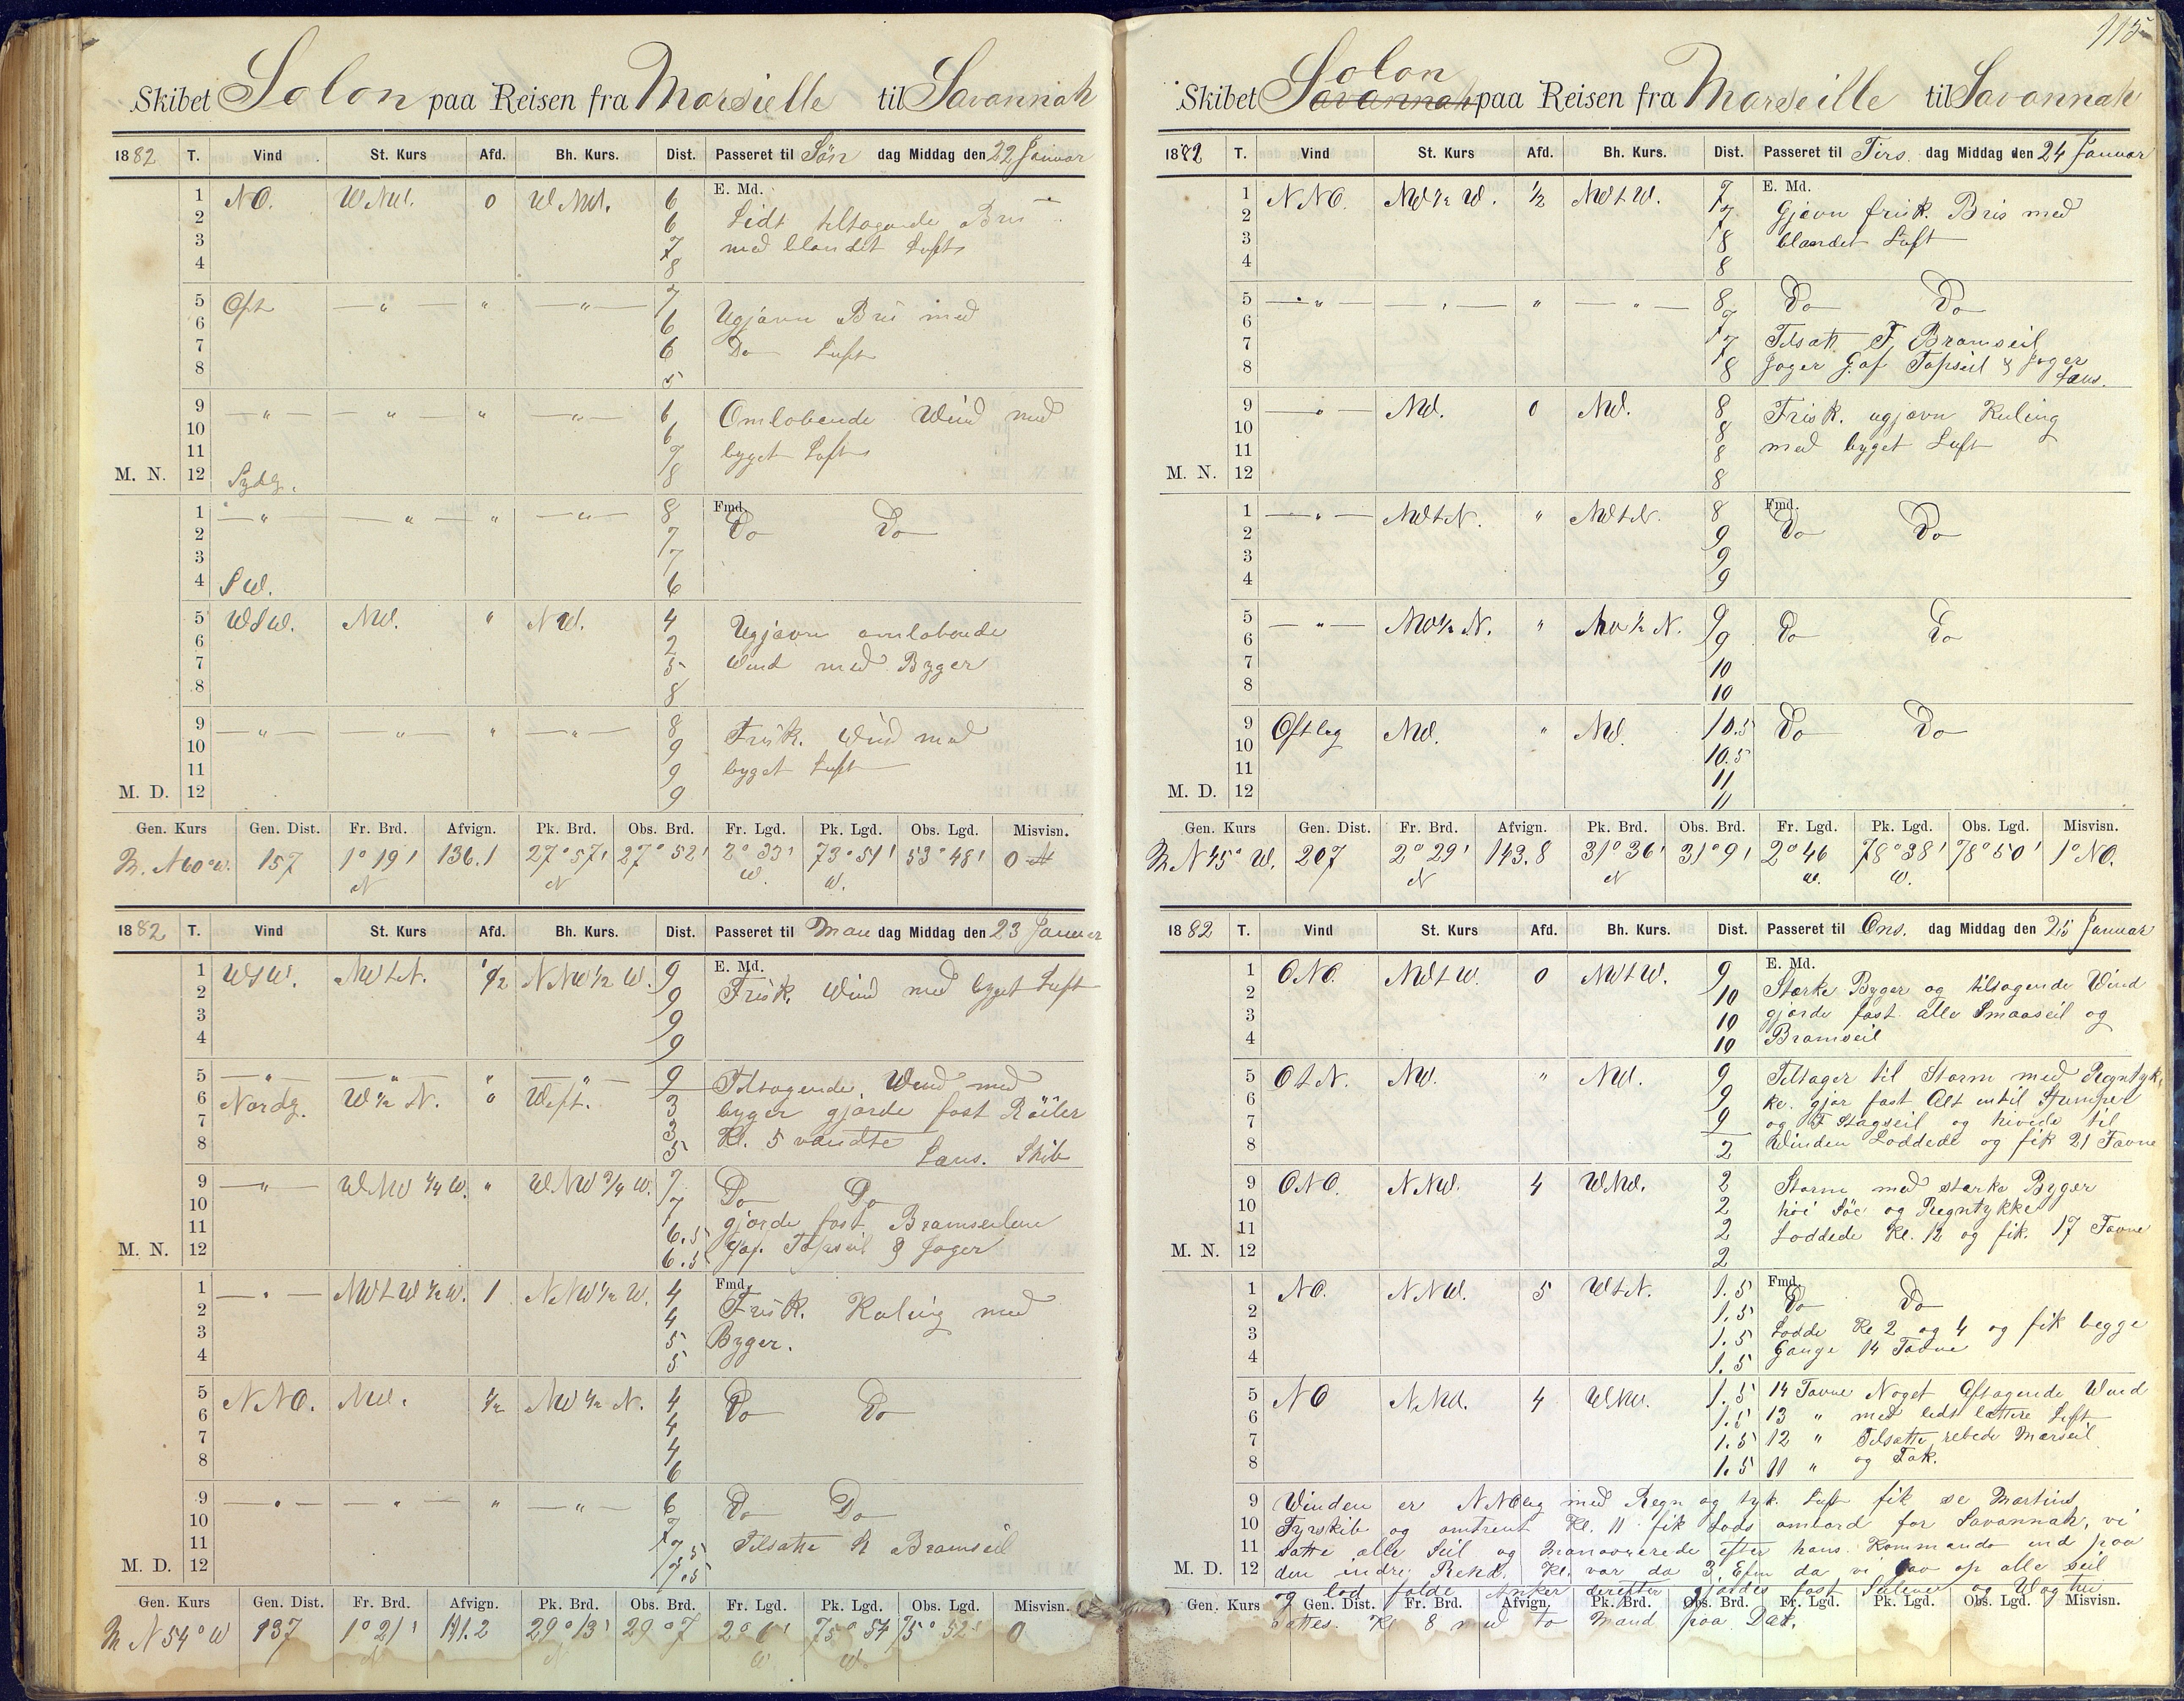 Skibet Solon paa Reisen fra Marsielle til Savannah
1882 T. Vind St. Kurs Afd. Bh. Kurs. Dist. Passeret til Søn dag Middag den 22 Januar
E. Md.
1 NO. WNW. 0 WNW. 6
2 6 Lidt tiltagende Bris
3 7 med blandet Luft
4 8
5 Ost — " — " — " — 7 Ugjævn Bris med
6 6
7 6 Do Luft
8 5
9 — " — — " — " — " — 6 Omløbende Wind med
10 6
11 7 byget Luft
M. N. 12 Sydlg. 8
Fmd.
1 — " — — " — " — " — 8 Do Do
2 7
3 7
4 SW. 6
5 WSW. NW. " NW. 4 Ugjævn omløbende
6 2
7 5 Wind med Byger
8 8
9 — " — — " — " — " — 8 Frisk. Wind med
10 9
11 9 byget Luft
M. D. 12 9
Gen. Kurs Gen. Dist. Fr. Brd. Afvign. Pk. Brd. Obs. Brd. Fr. Lgd. Pk. Lgd. Obs. Lgd. Misvisn.
M. N 60° W. 157 1° 19' N 136.1 27° 57' N 27° 52' 2° 33' W. 73° 51' W. 53° 48' 0
1882 T. Vind St. Kurs Afd. Bh. Kurs. Dist. Passeret til Man dag Middag den 23 Januar
E. Md.
1 WSW. NWtN. 1/2 NNW 1/2 W. 9 Frisk. Wind med byget Luft
2 9
3 9
4 9
5 — " — — " — " — " — 9 Tiltagende Wind med
6 Nordg. W 1/2 N. 0 West. 3 byger gjorde fast Røiler
7 3 Kl. 5 vendte
8 5 Lans. Skib
9 — " — WNW 1/4 W. " WNW 3/4 W. 7 Do Do
10 7 gjorde fast Bramseilene
11 6.5 Gaf. Topseil & Jager
M. N. 12 6.5
Fmd.
1 — " — NWtW 1/2 W. 1 NNW 1/2 W. 4 Frisk. Kuling med
2 4
3 5 Byger.
4 5
5 NNO. NW. 1/2 NW 1/2 N. 4 Do Do
6 4
7 4
8 6
9 — " — — " — " — " — 6 Do Do
10 7
11 7.5 Tilsatte St Bramseil
M. D. 12 7.5
Gen. Kurs Gen. Dist. Fr. Brd. Afvign. Pk. Brd. Obs. Brd. Fr. Lgd. Pk. Lgd. Obs. Lgd. Misvisn.
M N 54° W 137 1° 21' N 111.2 29° 13' N 29° 7 2° 6' W 75° 54 W. 75° 52' 0
115
Skibet Savannah Solon paa Reisen fra Marseille til Savannah
1882 T. Vind St. Kurs Afd. Bh. Kurs. Dist. Passeret til Tirs. dag Middag den 24 Januar
E. Md.
1 NNO. NW 1/2 W. 1/2 NWtW. 7 Gjævn frisk. Bris med
2 7
3 8 blandet Luft
4 8
5 — " — — " — " — " — 8 Do Do
6 7
7 7 Tilsatt F. Bramseil
8 8 Jager Gaf Topseil & Jager
Lans.
9 — " — NW. 0 NW. 8 Frisk. ugjævn Kuling
10 8
11 8 med byget Luft
M. N. 12 8
Fmd.
1 — " — NWtN. " NWtN. 8 Do Do
2 9
3 9
4 9
5 — " — NW 1/2 N. " NW 1/2 N. 9 Do Do
6 9
7 10
8 10
9 Ostleg NW. " NW. 10.5 Do Do
10 10.5
11 11
M. D. 12 11
Gen. Kurs Gen. Dist. Fr. Brd. Afvign. Pk. Brd. Obs. Brd. Fr. Lgd. Pk. Lgd. Obs. Lgd. Misvisn.
M N 45° W. 207 2° 29' N 143.8 31° 36' N 31° 9' 2° 46 W. 78° 38' W. 78° 50' 1° NO.
1882 T. Vind St. Kurs Afd. Bh. Kurs. Dist. Passeret til Ons. dag Middag den 25 Januar
E. Md.
1 ONO. NWtW. 0 NWtW. 9 Stærke Byger og tiltagende Vind
2 10
3 10 gjorde fast alle Smaaseil og
4 10 Bramseil
5 OtN. NW. " NW. 9 Tiltager til Storm med Regntyk
6 9 ke. gjør fast Alt intil Stumper
7 9 og F Stagseil og hivede til
8 2 Winden Loddede og fik 21 Favne
9 ONO. NNW. 4 WNW. 2 Storm med stærke Byger
10 2 høi Søe og Regntykke
11 2 Loddede Kl. 12 og fik. 17 Favne
M. N. 12 2
Fmd.
1 NO. NNW. 5 WtN. 1.5 Do Do
2 1.5
3 1.5 Lodde Kl 2 og 4 og fik begge
4 1.5 Gange 14 Favne
5 NO NNW. 4 WNW. 1.5 14 Favne Noget Aftagende Wind
6 1.5 13 " med lidt lættere Luft
7 1.5 12 " Tilsatte rebede Mærseil
8 1.5 11 " og Fok.
9 Winden er NNOlig med Regn og tyk. Luft fik se Martins
10 Fyrskib og omtrent Kl. 11 fik Lods ombord for Savannah, vi
11 satte alle Seil og Manøvrerede efter hans Kommando ind paa
M. D. 12 den indre Rehd. Kl. var da 3 Efm da vi gav op alle Seil
og lod falde Anker derefter gjordes fast Seilene og Wagten
Gen. Kurs Gen. Dist. Fr. Brd. Afvign. Pk. Brd. Obs. Brd. Fr. Lgd. Pk. Lgd. Obs. Lgd. Misvisn.
sattes. Kl 8 med to Mand paa Dæk.